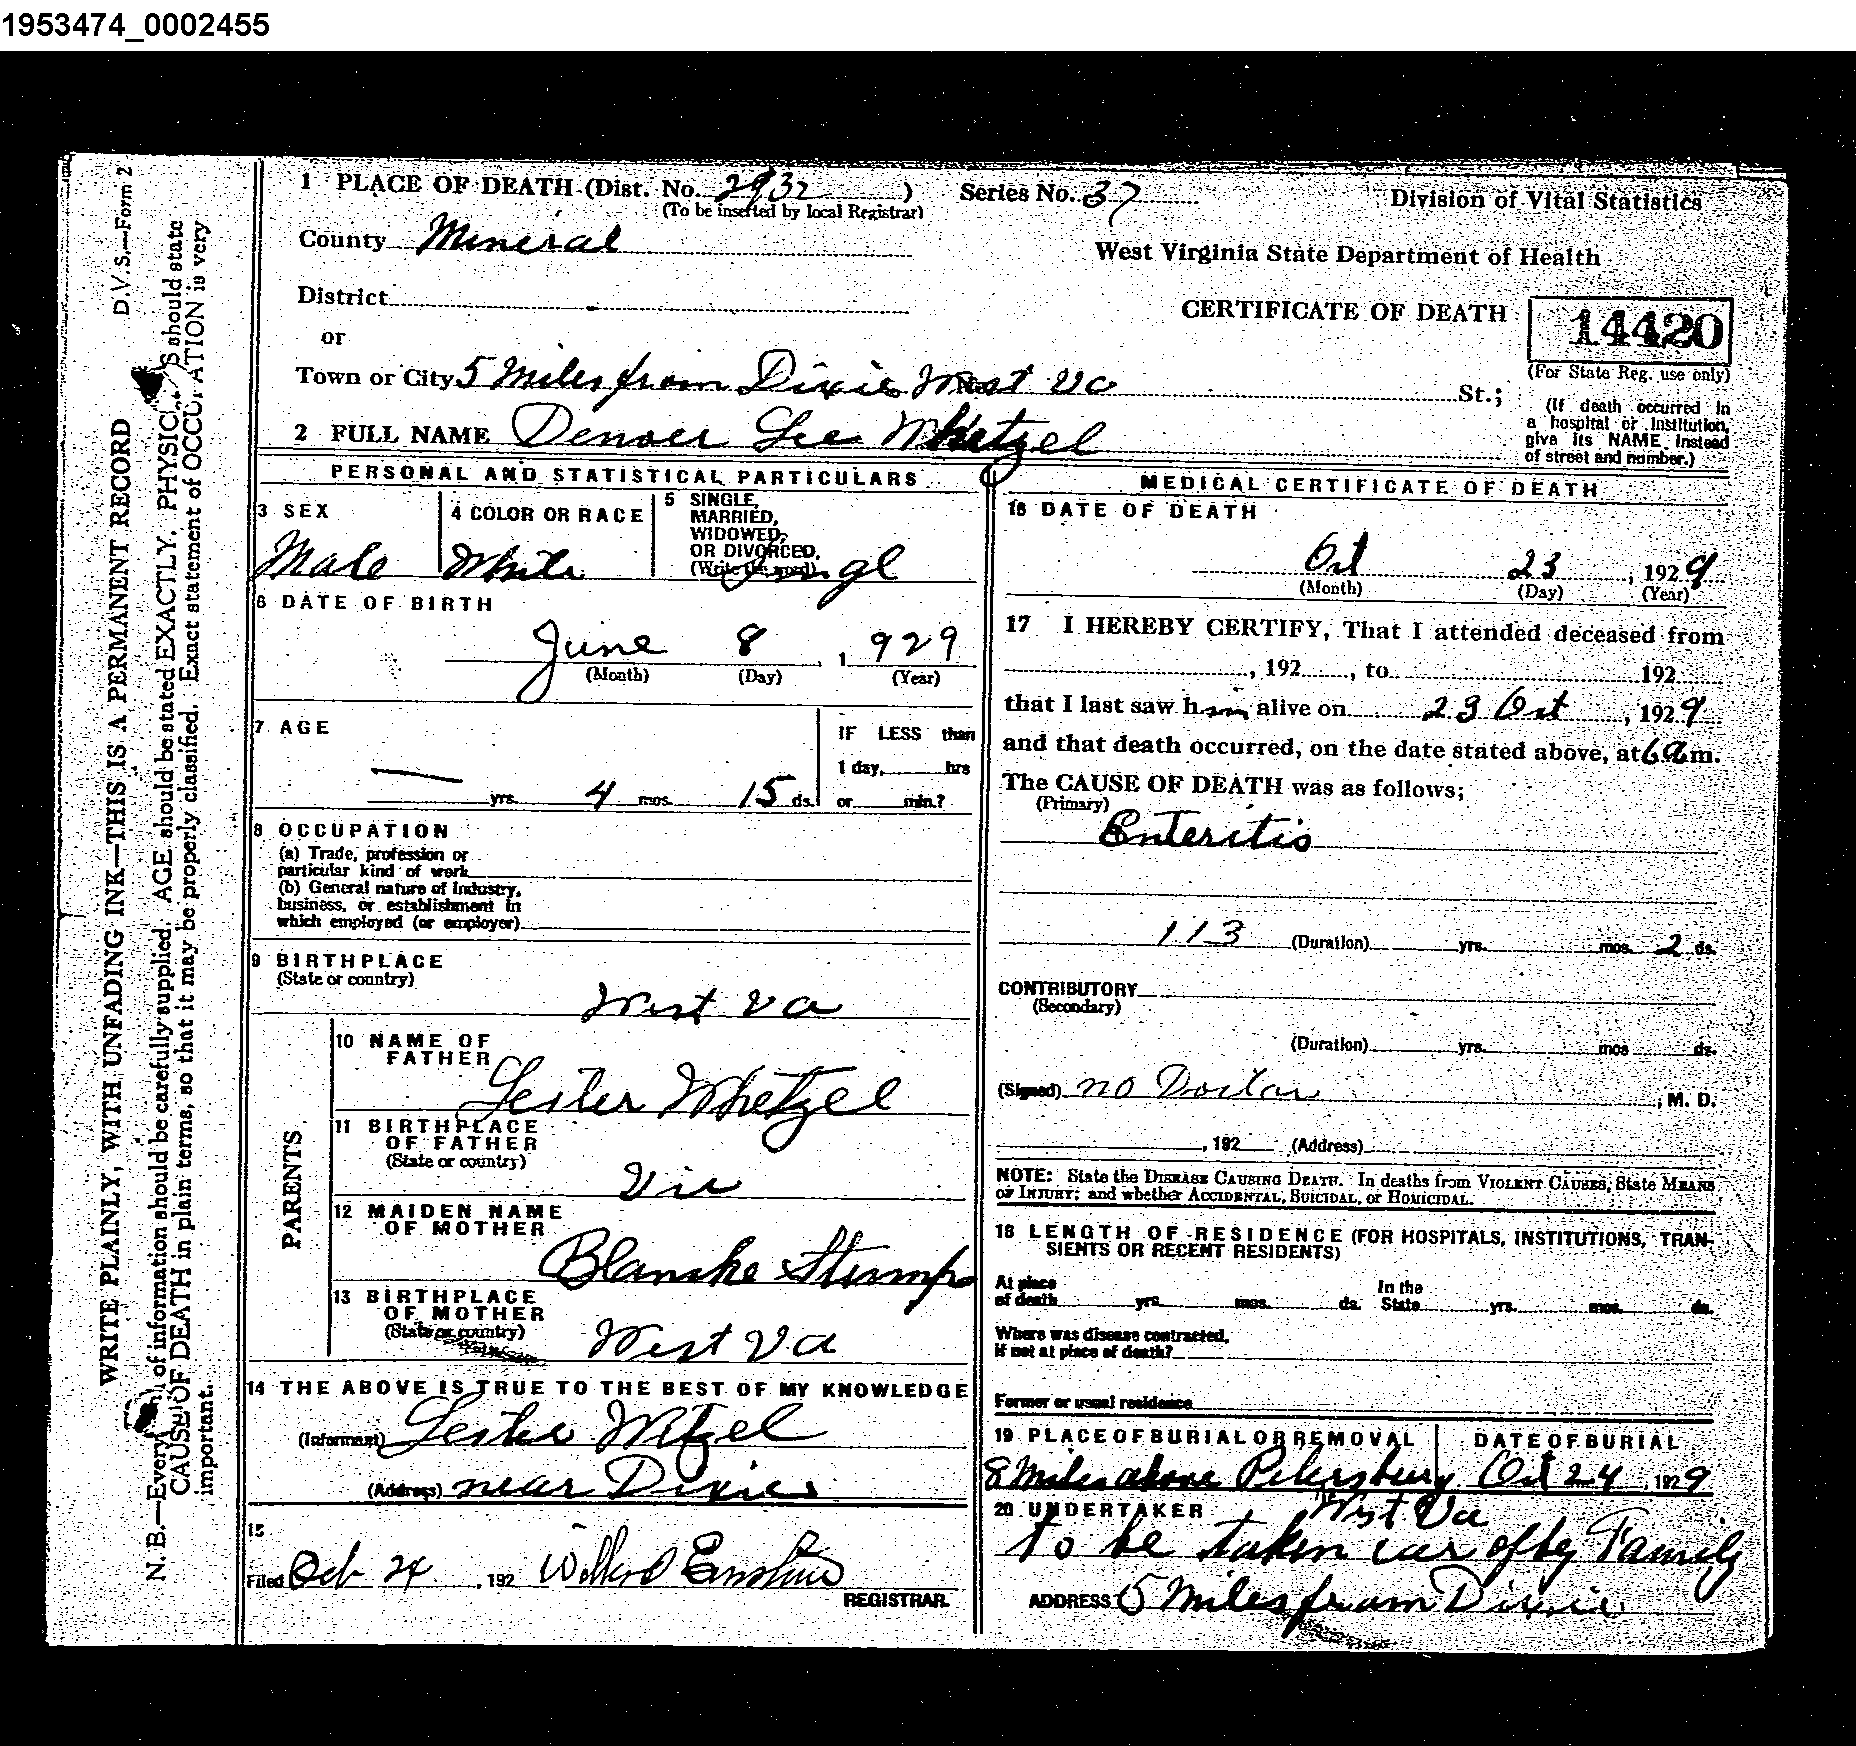 1953474_0002455
1 PLACE OF DEATH (Dist. No. 2932 ) Series No. 37
(To be inserted by local Registrar)
Division of Vital Statistics
County Mineral
West Virginia State Department of Health
District
CERTIFICATE OF DEATH
14420
(For State Reg. use only)
or
Town or City 5 Miles from Dixie West Va St.;
(If death occurred in
a hospital or institution,
give its NAME instead
of street and number.)
2 FULL NAME Denver Lee Whetzel
PERSONAL AND STATISTICAL PARTICULARS
3 SEX
Male
4 COLOR OR RACE
White
5 SINGLE,
MARRIED,
WIDOWED,
OR DIVORCED.
(Write the word)
Singl
6 DATE OF BIRTH
June 8 , 1929
(Month) (Day) (Year)
7 AGE
— yrs. 4 mos. 15 ds.
IF LESS than
1 day, hrs
or min.?
8 OCCUPATION
(a) Trade, profession or
particular kind of work
(b) General nature of Industry,
business, or establishment in
which employed (or employer)
9 BIRTHPLACE
(State or country)
West Va
PARENTS
10 NAME OF
FATHER
Lester Whetzel
11 BIRTHPLACE
OF FATHER
(State or country)
Vir
12 MAIDEN NAME
OF MOTHER
Blanche Stump
13 BIRTHPLACE
OF MOTHER
(State or country)
West Va
14 THE ABOVE IS TRUE TO THE BEST OF MY KNOWLEDGE
(Informant) Lester Wetzel
(Address) near Dixie
15
Filed Oct 24 , 192
REGISTRAR.
MEDICAL CERTIFICATE OF DEATH
16 DATE OF DEATH
Oct 23 , 1929
(Month) (Day) (Year)
17 I HEREBY CERTIFY, That I attended deceased from
, 192 , to 192
that I last saw him alive on 23 Oct , 1929
and that death occurred, on the date stated above, at 6 a m.
The CAUSE OF DEATH was as follows;
(Primary)
Enteritis
113 (Duration) yrs. mos. 2 ds.
CONTRIBUTORY
(Secondary)
(Duration) yrs. mos ds.
(Signed) no Doctor , M. D.
, 192 (Address)
NOTE: State the DISEASE CAUSING DEATH. In deaths from VIOLENT CAUSES, State MEANS
OF INJURY; and whether ACCIDENTAL, SUICIDAL, or HOMICIDAL.
18 LENGTH OF RESIDENCE (FOR HOSPITALS, INSTITUTIONS, TRAN-
SIENTS OR RECENT RESIDENTS)
At place
of death yrs. mos. ds.
In the
State yrs. mos. ds.
Where was disease contracted,
if not at place of death?
Former or usual residence
19 PLACE OF BURIAL OR REMOVAL
8 Miles above Petersburg
West Va
DATE OF BURIAL
Oct 24 , 1929
20 UNDERTAKER
to be taken car of by Family
ADDRESS 5 Miles from Dixie
D.V.S.—Form 2
WRITE PLAINLY, WITH UNFADING INK—THIS IS A PERMANENT RECORD
N. B.—Every of information should be carefully supplied. AGE should be stated EXACTLY. PHYSIC S should state
CAUSE OF DEATH in plain terms, so that it may be properly classified. Exact statement of OCCUPATION is very
important.